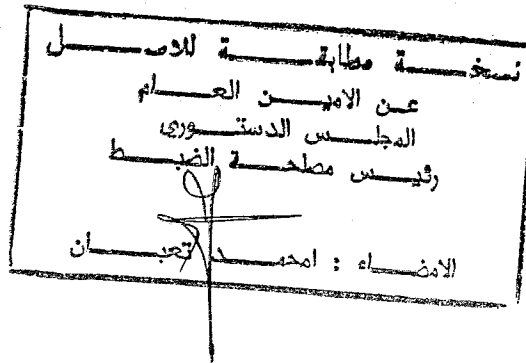 نسخة مطابقة للاصل
عن الامين العام
المجلس الدستوري
رئيس مصلحة الضبط
الامضاء : امحمد تعبان